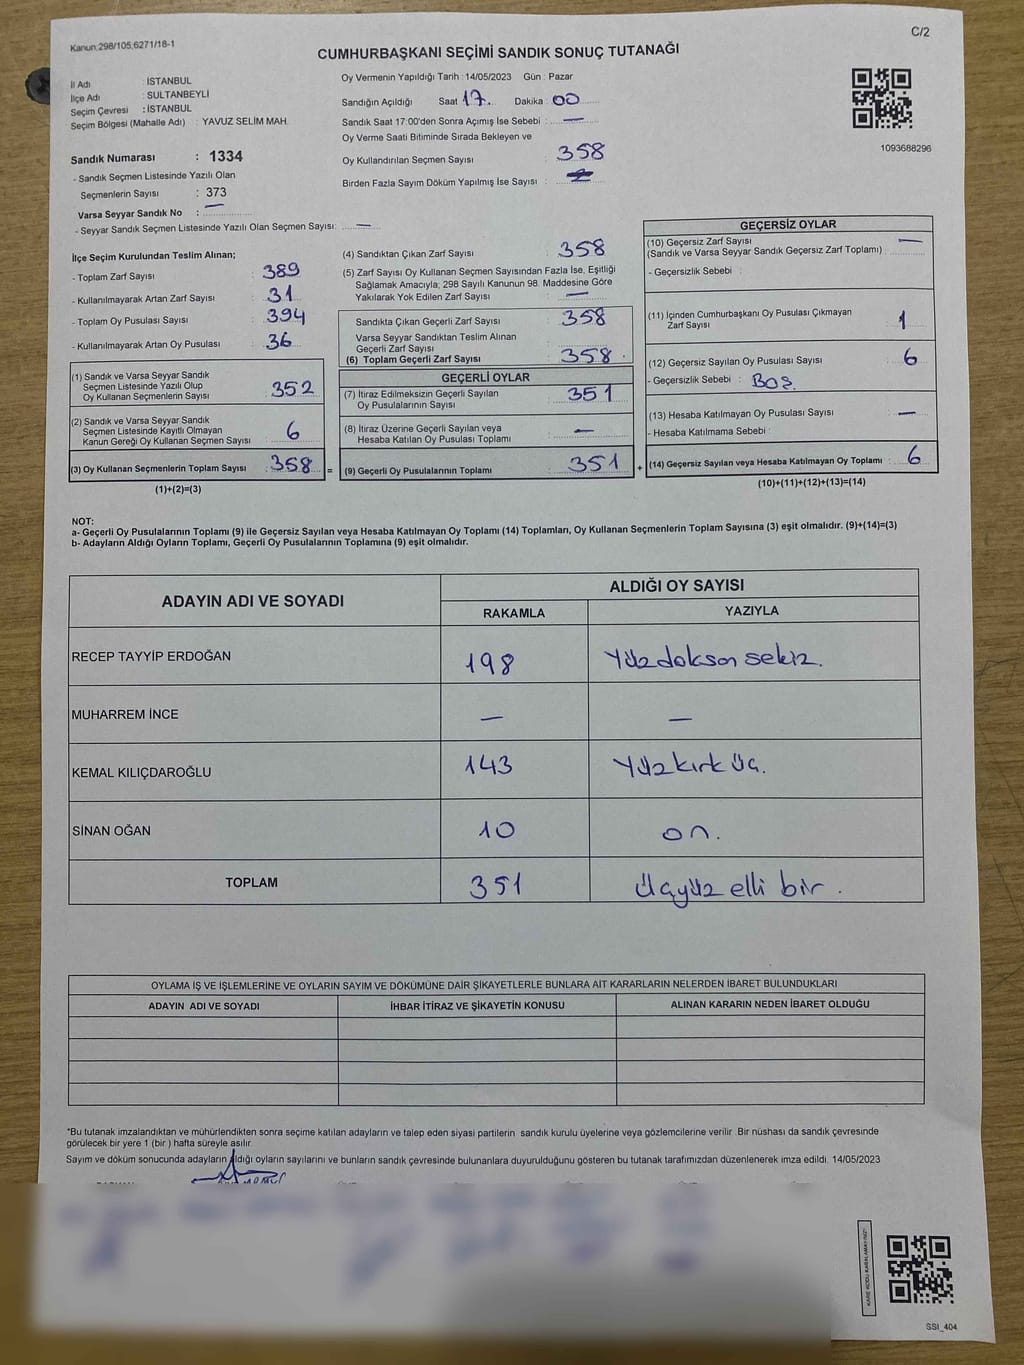 Kanun:298/105,6271/18-1
C/2
CUMHURBAŞKANI SEÇİMİ SANDIK SONUÇ TUTANAĞI
İl Adı : İSTANBUL
İlçe Adı : SULTANBEYLİ
Seçim Çevresi : İSTANBUL
Seçim Bölgesi (Mahalle Adı) : YAVUZ SELİM MAH.
Sandık Numarası : 1334
- Sandık Seçmen Listesinde Yazılı Olan
Seçmenlerin Sayısı : 373
Varsa Seyyar Sandık No : —
- Seyyar Sandık Seçmen Listesinde Yazılı Olan Seçmen Sayısı: —
Oy Vermenin Yapıldığı Tarih : 14/05/2023 Gün : Pazar
Sandığın Açıldığı Saat 17 Dakika 00
Sandık Saat 17:00'den Sonra Açımış İse Sebebi : —
Oy Verme Saati Bitiminde Sırada Bekleyen ve
Oy Kullandırılan Seçmen Sayısı : 358
Birden Fazla Sayım Döküm Yapılmış İse Sayısı :
1093688296
İlçe Seçim Kurulundan Teslim Alınan;
- Toplam Zarf Sayısı : 389
- Kullanılmayarak Artan Zarf Sayısı : 31
- Toplam Oy Pusulası Sayısı : 394
- Kullanılmayarak Artan Oy Pusulası : 36
(1) Sandık ve Varsa Seyyar Sandık
Seçmen Listesinde Yazılı Olup
Oy Kullanan Seçmenlerin Sayısı : 352
(2) Sandık ve Varsa Seyyar Sandık
Seçmen Listesinde Kayıtlı Olmayan
Kanun Gereği Oy Kullanan Seçmen Sayısı : 6
(3) Oy Kullanan Seçmenlerin Toplam Sayısı : 358 =
(1)+(2)=(3)
(4) Sandıktan Çıkan Zarf Sayısı : 358
(5) Zarf Sayısı Oy Kullanan Seçmen Sayısından Fazla İse, Eşitliği
Sağlamak Amacıyla; 298 Sayılı Kanunun 98. Maddesine Göre
Yakılarak Yok Edilen Zarf Sayısı : —
Sandıkta Çıkan Geçerli Zarf Sayısı : 358
Varsa Seyyar Sandıktan Teslim Alınan
Geçerli Zarf Sayısı :
(6) Toplam Geçerli Zarf Sayısı : 358
GEÇERLİ OYLAR
(7) İtiraz Edilmeksizin Geçerli Sayılan
Oy Pusulalarının Sayısı : 351
(8) İtiraz Üzerine Geçerli Sayılan veya
Hesaba Katılan Oy Pusulası Toplamı : —
(9) Geçerli Oy Pusulalarının Toplamı : 351 +
GEÇERSİZ OYLAR
(10) Geçersiz Zarf Sayısı —
(Sandık ve Varsa Seyyar Sandık Geçersiz Zarf Toplamı) :
- Geçersizlik Sebebi :
(11) İçinden Cumhurbaşkanı Oy Pusulası Çıkmayan
Zarf Sayısı : 1
(12) Geçersiz Sayılan Oy Pusulası Sayısı : 6
- Geçersizlik Sebebi : BOŞ
(13) Hesaba Katılmayan Oy Pusulası Sayısı : —
- Hesaba Katılmama Sebebi :
(14) Geçersiz Sayılan veya Hesaba Katılmayan Oy Toplamı : 6
(10)+(11)+(12)+(13)=(14)
NOT:
a- Geçerli Oy Pusulalarının Toplamı (9) ile Geçersiz Sayılan veya Hesaba Katılmayan Oy Toplamı (14) Toplamları, Oy Kullanan Seçmenlerin Toplam Sayısına (3) eşit olmalıdır. (9)+(14)=(3)
b- Adayların Aldığı Oyların Toplamı, Geçerli Oy Pusulalarının Toplamına (9) eşit olmalıdır.
ADAYIN ADI VE SOYADI ALDIĞI OY SAYISI
RAKAMLA YAZIYLA
RECEP TAYYİP ERDOĞAN 198 Yüzdoksan sekiz.
MUHARREM İNCE — —
KEMAL KILIÇDAROĞLU 143 Yüzkırk üç.
SİNAN OĞAN 10 on.
TOPLAM 351 Üçyüz elli bir.
OYLAMA İŞ VE İŞLEMLERİNE VE OYLARIN SAYIM VE DÖKÜMÜNE DAİR ŞİKAYETLERLE BUNLARA AİT KARARLARIN NELERDEN İBARET BULUNDUKLARI
ADAYIN ADI VE SOYADI İHBAR İTİRAZ VE ŞİKAYETİN KONUSU ALINAN KARARIN NEDEN İBARET OLDUĞU
*Bu tutanak imzalandıktan ve mühürlendikten sonra seçime katılan adayların ve talep eden siyasi partilerin sandık kurulu üyelerine veya gözlemcilerine verilir. Bir nüshası da sandık çevresinde
görülecek bir yere 1 (bir) hafta süreyle asılır.
Sayım ve döküm sonucunda adayların aldığı oyların sayılarını ve bunların sandık çevresinde bulunanlara duyurulduğunu gösteren bu tutanak tarafımızdan düzenlenerek imza edildi. 14/05/2023
KARE KODU KARALAMAYINIZ!
SSI_404